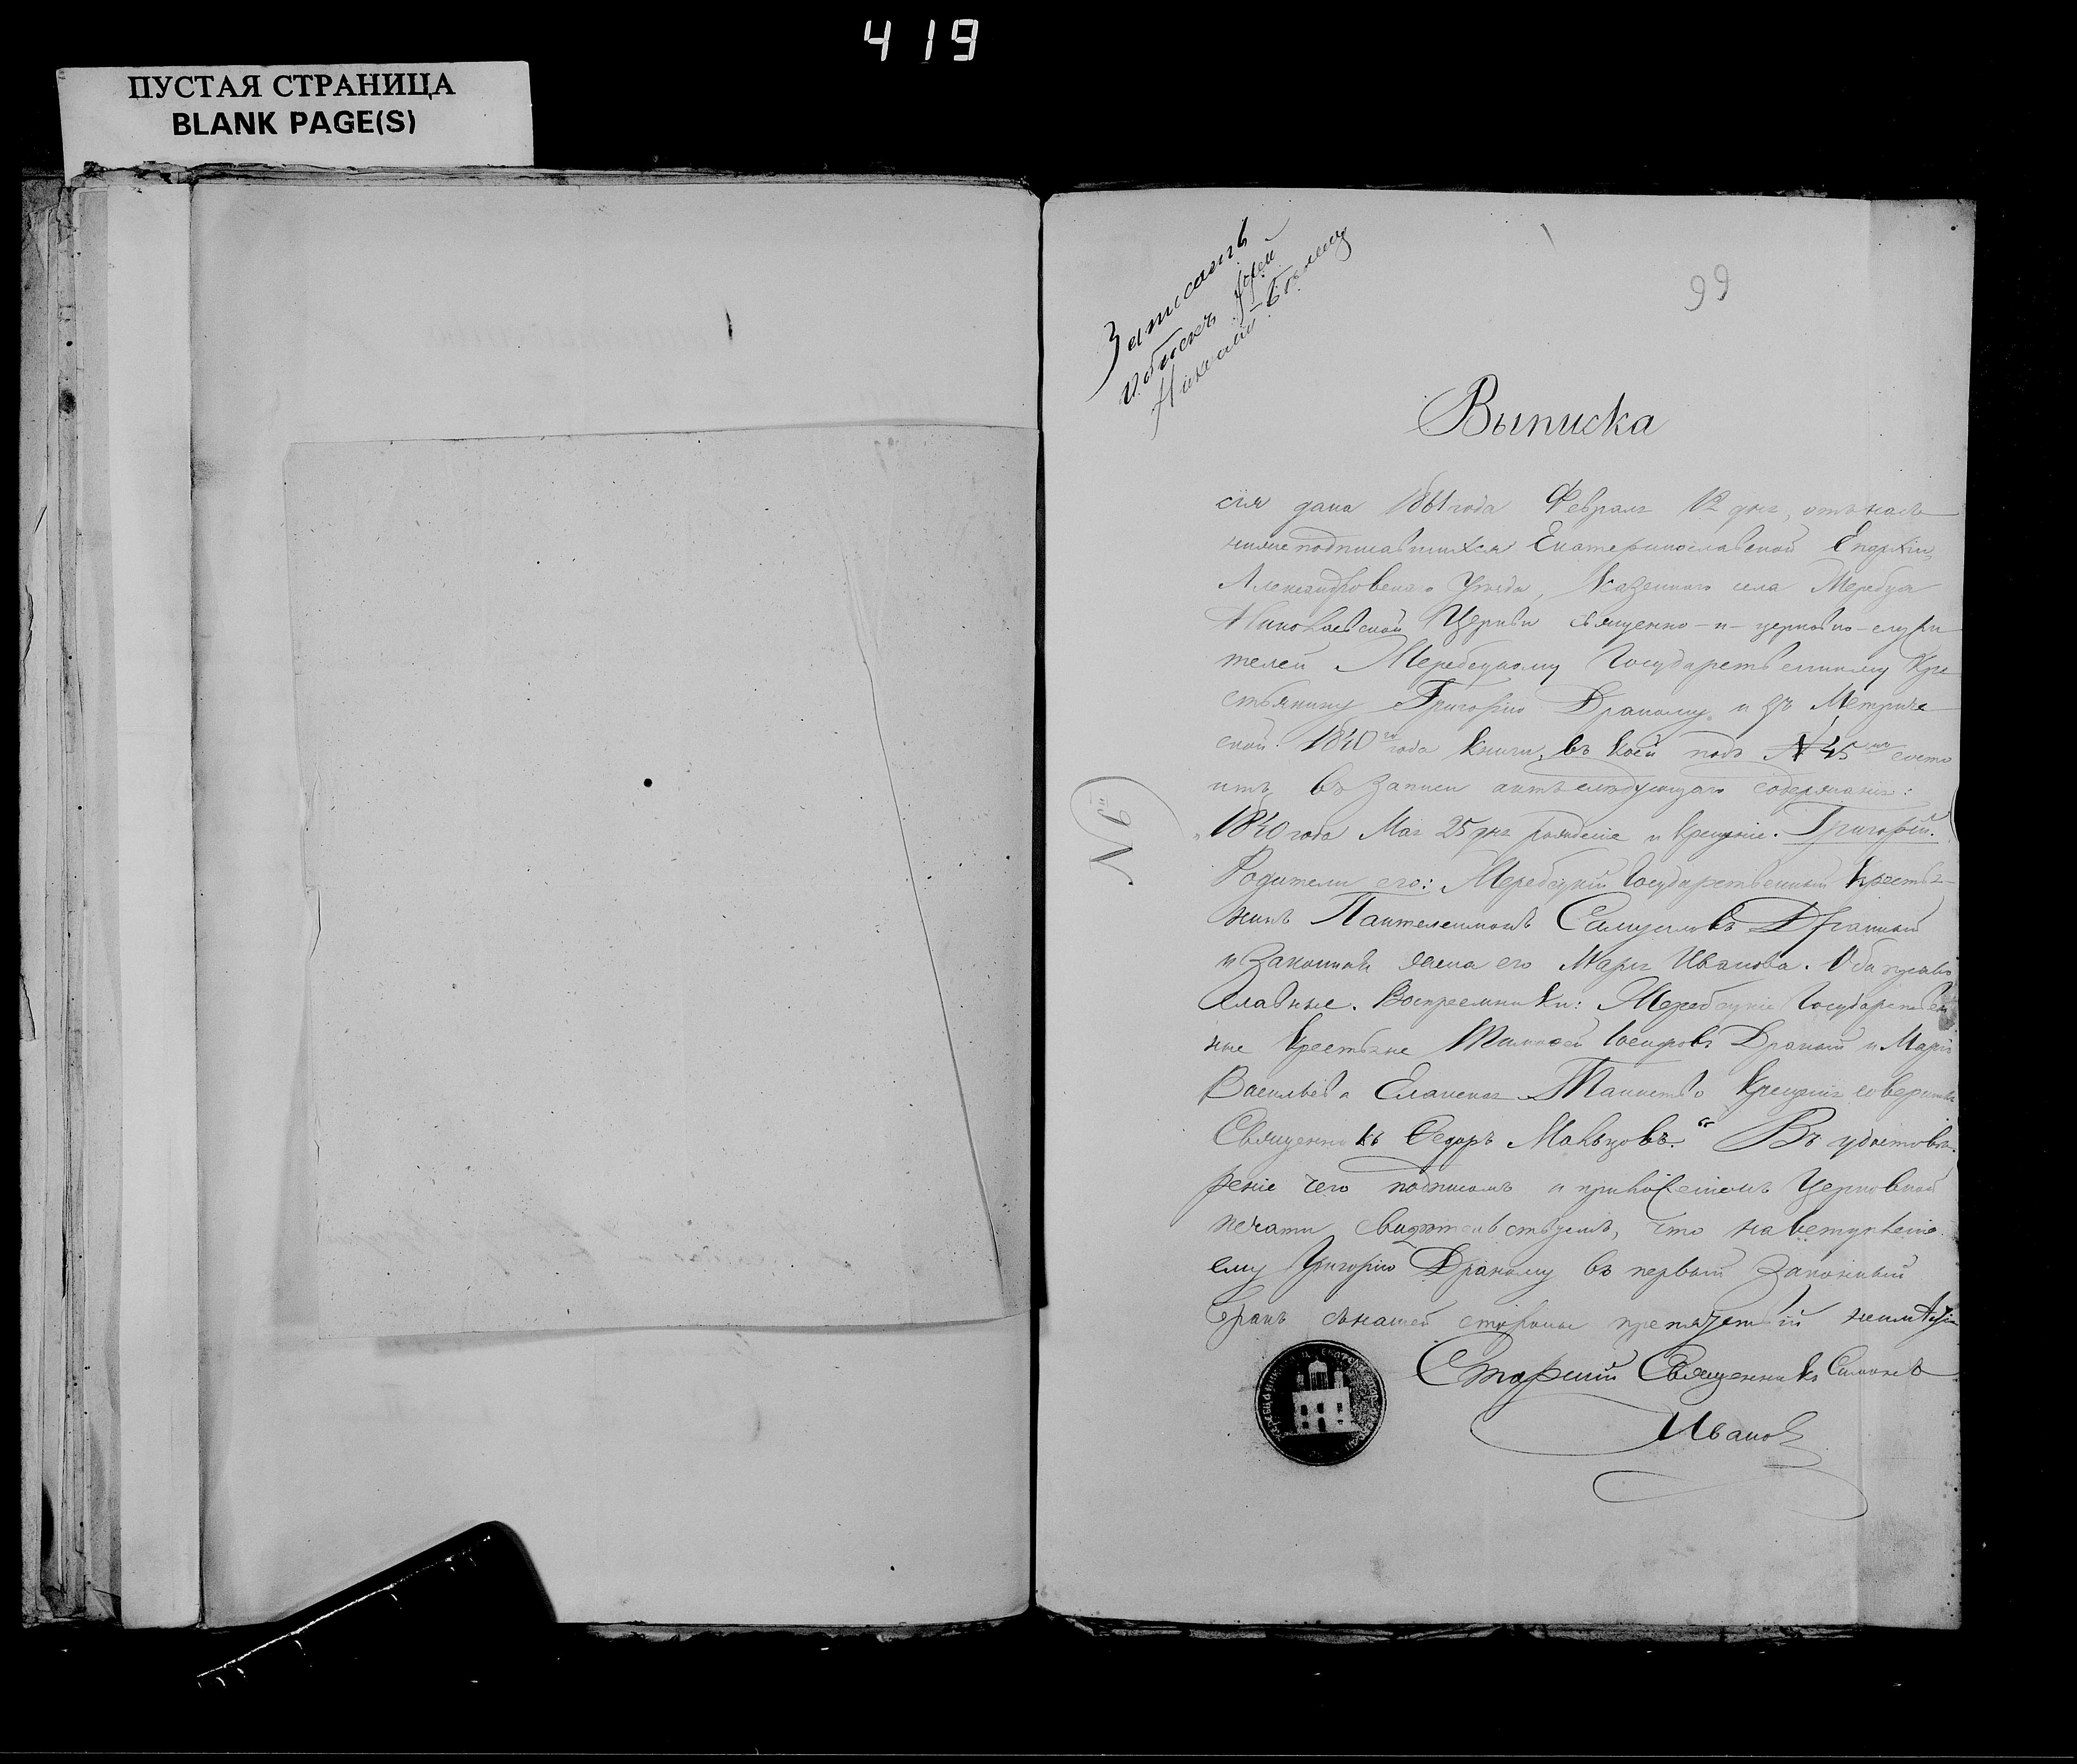 419
ПУСТАЯ СТРАНИЦА
BLANK PAGE(S)
99
Записанъ
Выписка
сія дана 1861 года Февраля 12 дня, отъ насъ
нижеподписавшихся Екатеринославской Епархіи,
Александровскаго Уѣзда, Казеннаго села
Николаевской Церкви священно-и-церковно-служи
телей Государственному Кре
стьянину Григорію Драному изъ Метриче
ской 1840 года книги, въ коей подъ № 45 состо
итъ въ записи актъ слѣдующаго содержанія:
№ 6й
„1840 года Мая 25 дня рожденіе и крещеніе. Григорій.
Родители его: Государственный Крестья-
нинъ Пантелеимонъ Самуиловъ Драный
и законная жена его Марія Иванова. Оба право
славные. Воспреемники: Государствен
ные Крестьяне Іосифовъ Драный и Марія
Васильева Таинство Крещенія совершалъ
Священникъ Федоръ Мальцовъ.“ Въ удостовѣ-
реніе чего подписомъ и приложеніемъ Церковной
печати свидѣтельствуемъ, что на вступленіе
ему Григорію Драному въ первый законный
бракъ съ нашей стороны препятствій неимѣется
Старшій Священникъ Симеонъ
Ивановъ